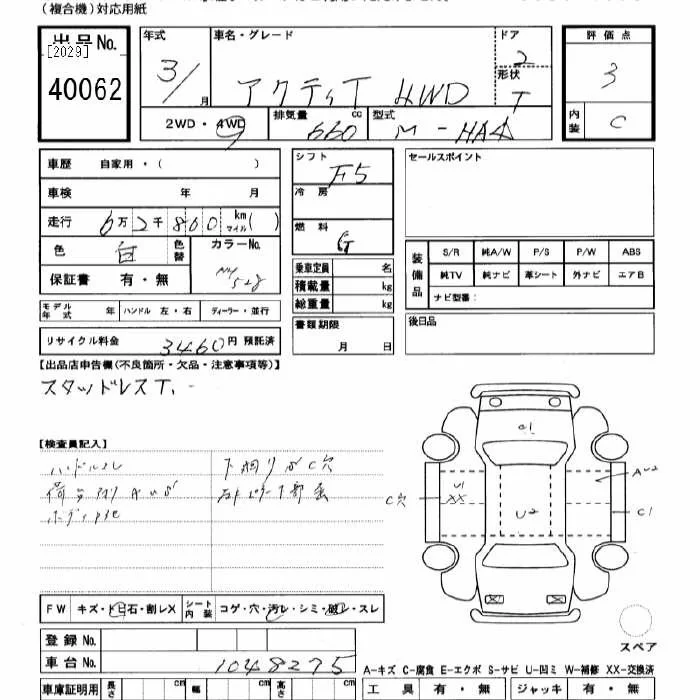 (複合機)対応用紙
出品No.
[2029]
40062
年式
3/
月
車名・グレード
アクティT 4WD
ドア
2
形状
T
評価点
3
内装
C
2WD・4WD
排気量
660
cc
型式
M-HA4
車歴 自家用・( )
車検 年 月
走行 6万2千860 km マイル( )
色 白 色替 カラーNo.
NH
528
保証書 有・無
シフト
F5
冷房
燃料
G
乗車定員 名
積載量 kg
総重量 kg
セールスポイント
装備品
S/R 純A/W P/S P/W ABS
純TV 純ナビ 革シート 外ナビ エアB
ナビ型番:
モデル年式 年 ハンドル 左・右 ディーラー・並行
書類期限
月 日
後日品
リサイクル料金 3460円 預託済
【出品店申告欄(不良箇所・欠品・注意事項等)】
スタッドレスT.-
【検査員記入】
ハンドルスレ
下廻りサビC穴
C1
U1
XX
U2
AU2
C穴
C1
FW キズ・トビ石・割レX シート内装 コゲ・穴・汚レ・シミ・破レ・スレ
スペア
登録No.
車台No. 1048275
A-キズ C-腐食 E-エクボ S-サビ U-凹ミ W-補修 XX-交換済
車庫証明用 長さ cm 幅 cm 高さ cm
工具 有・無 ジャッキ 有・無